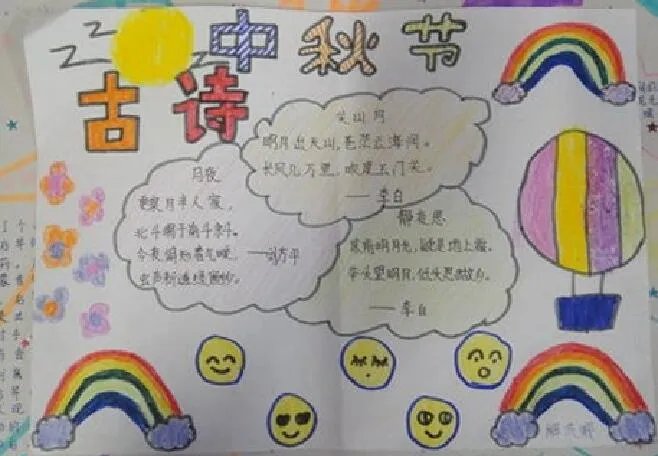 中秋节
古诗
关山月
明月出天山,苍茫云海间。
长风几万里,吹度玉门关。
——李白
月夜
更深月半人家,
北斗阑干南斗斜。
今夜偏知春气暖,
——刘方平
虫声新透绿窗纱。
静夜思
床前明月光,疑是地上霜。
举头望明月,低头思故乡。
——李白